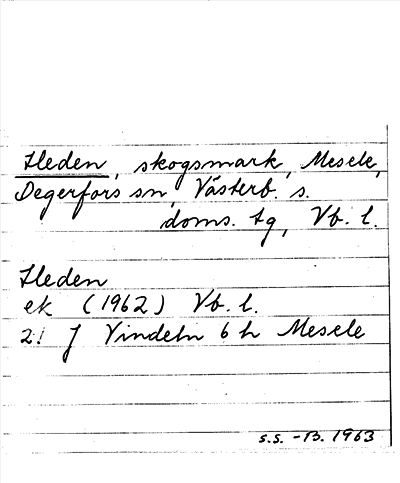 Heden, skogsmark, Mesele,
Degerfors sn, Västerb. s.
doms. tg, Vb. l.
Heden
ek (1962) Vb. l.
21 J Vindeln 6 h Mesele
S.S. -B. 1963